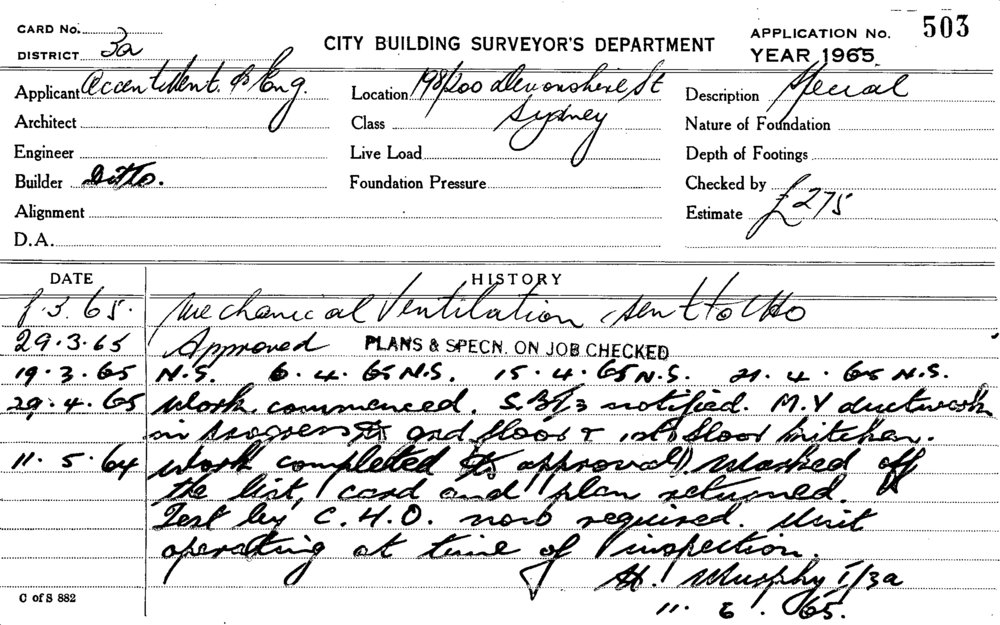 CARD No.
503
DISTRICT 3a
CITY BUILDING SURVEYOR'S DEPARTMENT
APPLICATION No.
YEAR 1965
Applicant Accent Vent. & Eng.
Location 198/200 Devonshire St
Sydney
Description Special
Architect
Class
Nature of Foundation
Engineer
Live Load
Depth of Footings
Builder Ditto.
Foundation Pressure
Checked by
Alignment
Estimate £275
D.A.
DATE HISTORY
8.3.65. Mechanical Ventilation sent to CHO
29.3.65 Approved PLANS & SPECN. ON JOB CHECKED
19.3.65 N.S. 6.4.65 N.S. 15.4.65 N.S. 21.4.65 N.S.
29.4.65 Work commenced. notified. M.V ductwork
in progress grd floor & 1st floor kitchen.
11.5.64 Work completed to approval. Marked off
the list, card and plan returned.
Test by C.H.O. now required. Unit
operating at time of inspection.
H. Murphy I/3a
11.6.65.
C of S 882